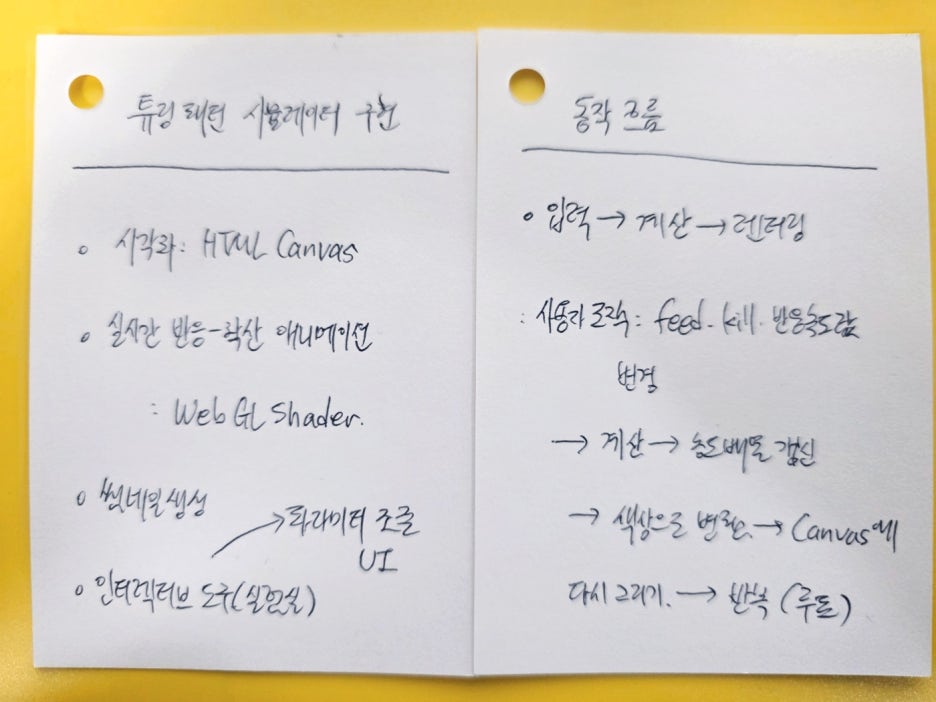 튜링 패턴 시뮬레이터 구현
시각화: HTML Canvas
실시간 반응-확산 애니메이션
: WebGL Shader.
썸네일 생성
→ 파라미터 조절
UI
인터렉티브 도구(실험실)
동작 흐름
입력 → 계산 → 렌더링
: 사용자 조작: feed. kill. 반응속도 값
변경
→ 계산 → 농도 배열 갱신
→ 색상으로 변환. → Canvas에
다시 그리기. → 반복 (루프)